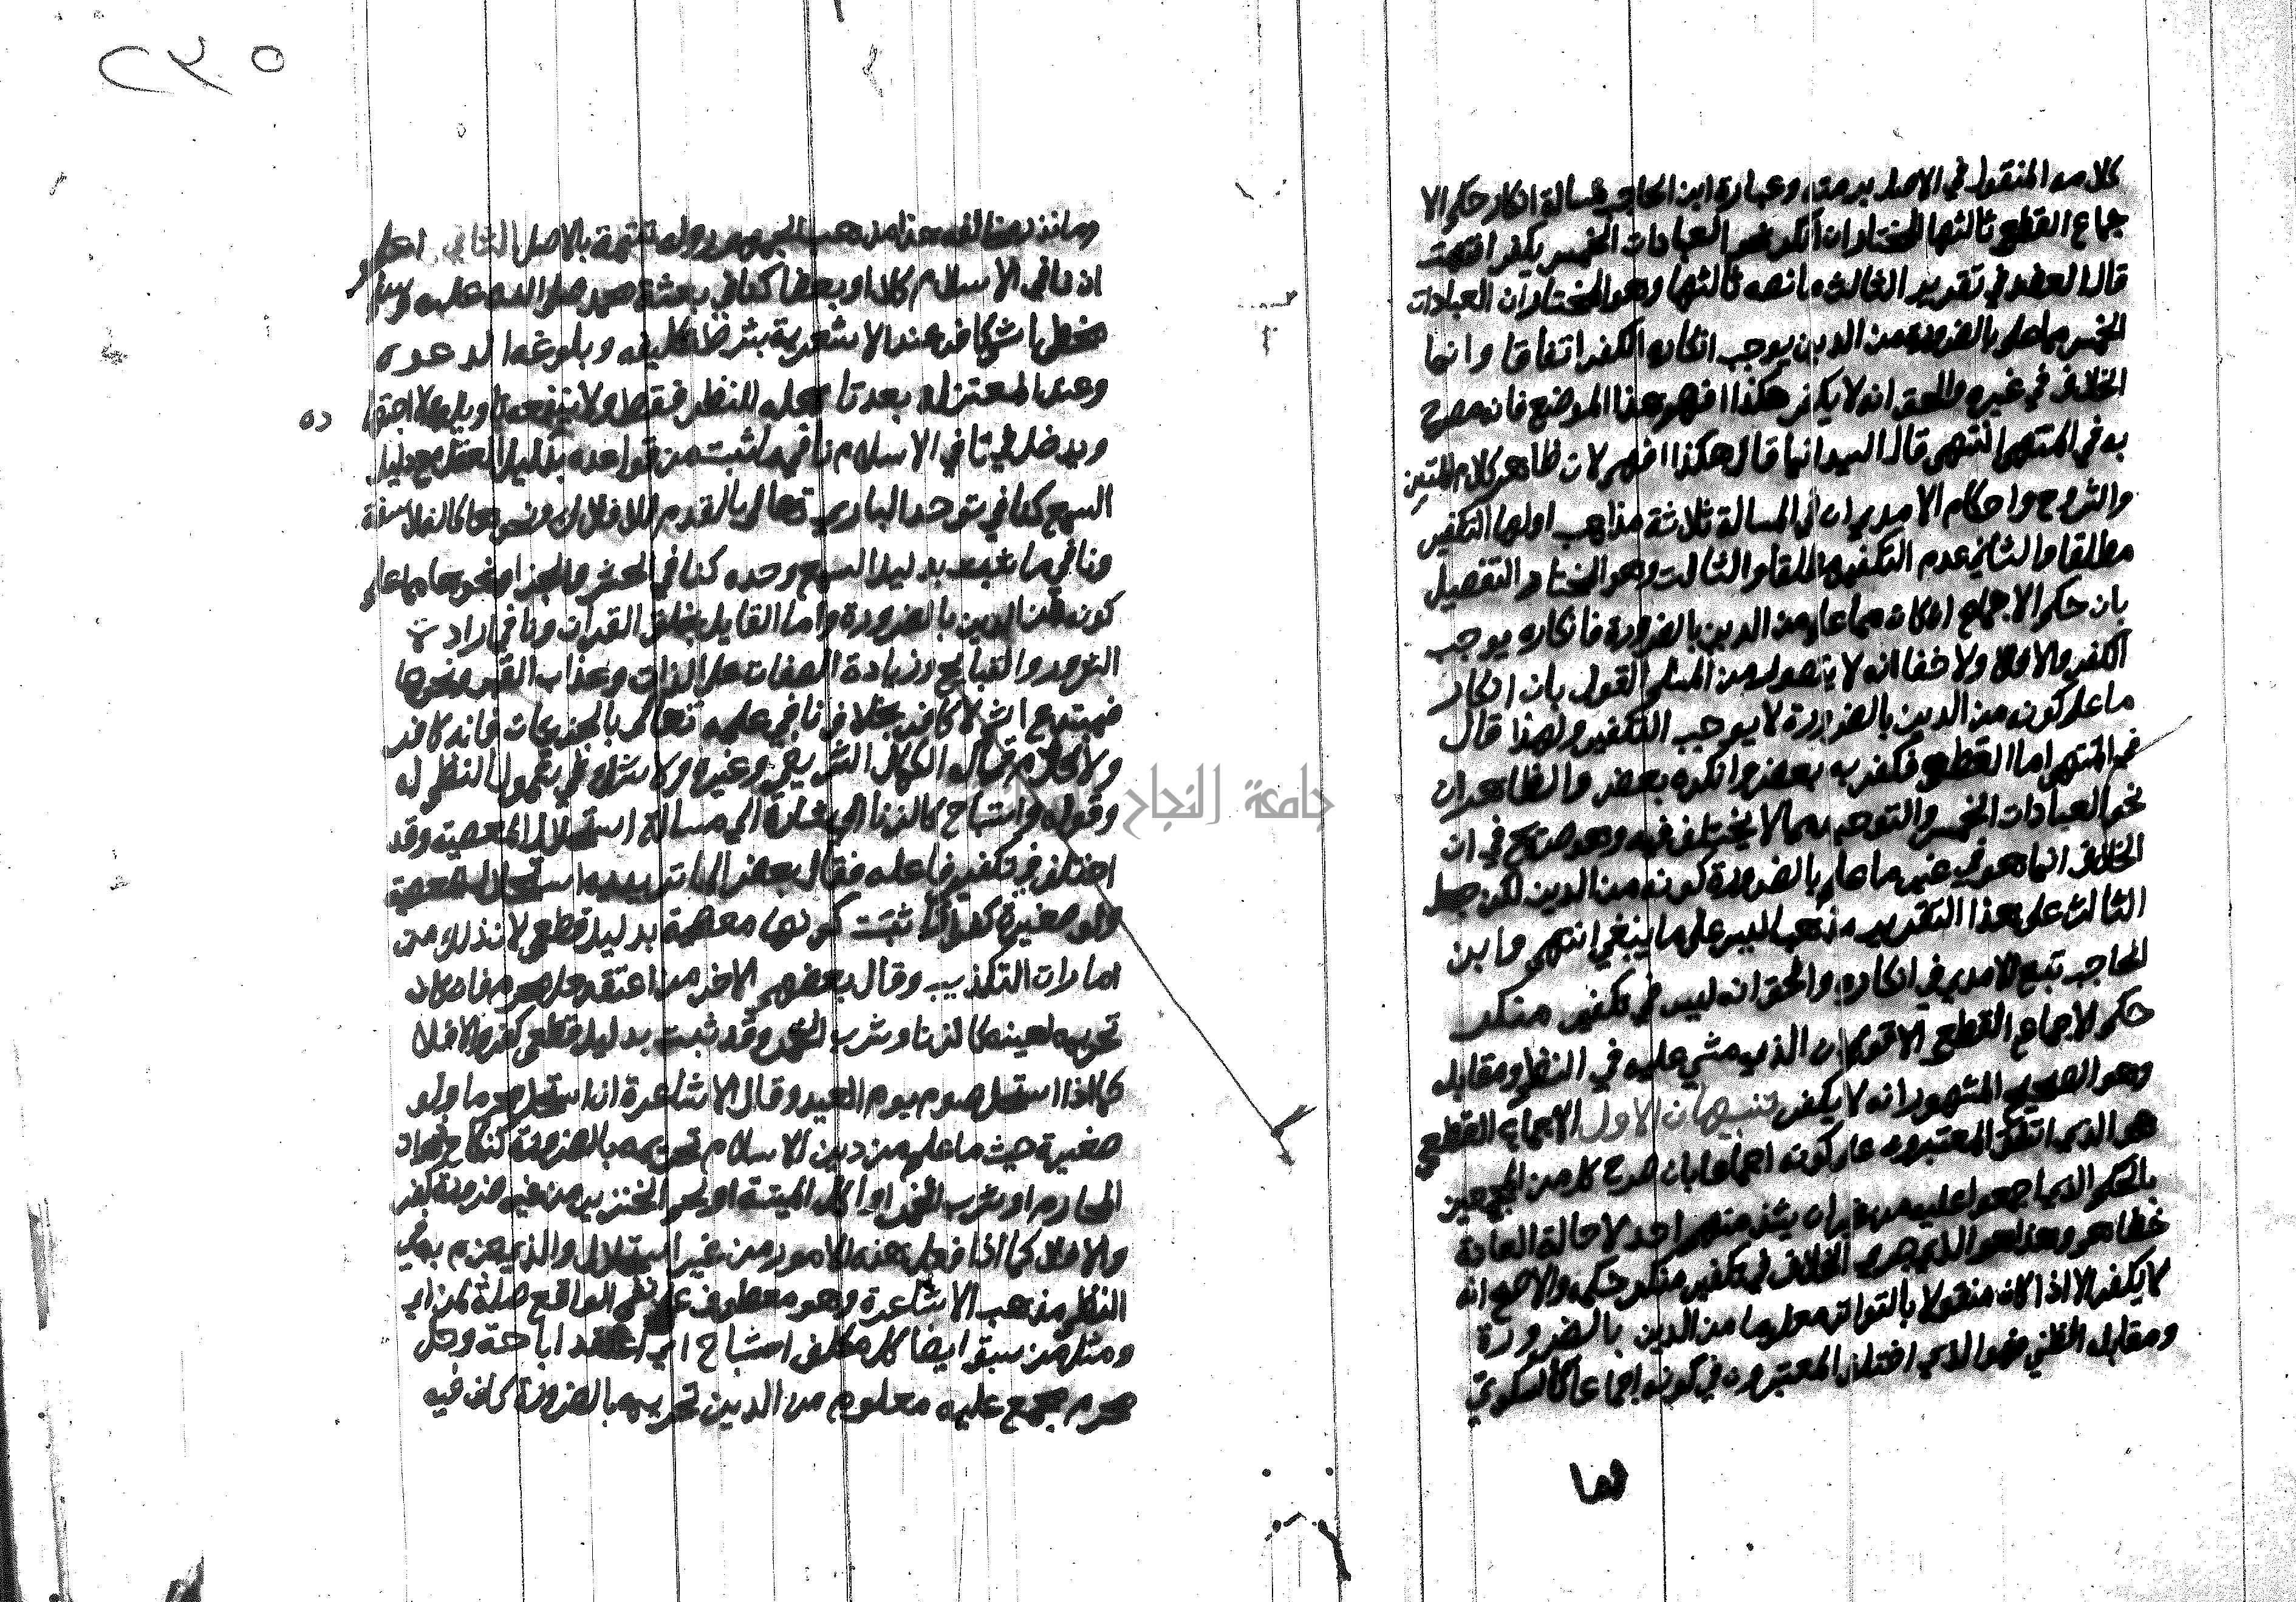 كلامه المنقول في الاصل برمته وعبارة ابن الحاجب مسالة انكار حكم الا
جماع القطعي ثالثها المختار ان انكر نحو العبادات الخمس يكفر انتهت
قال العضد في تقرير الثالث ما نصه ثالثها وهو المختار ان العبادات
الخمس مما علم بالضرورة من الدين يوجب انكاره الكفر اتفاقا وانما
الخلاف في غيره والحق انه لا يكفر هكذا افهم هذا الموضع فانه مصرح
به في المنتهى انتهى قال السيد انما قال هكذا افهم لان ظاهر كلام المتن
والشروح واحكام الامدي ان في المسالة ثلاثة مذاهب اولها التكفير
مطلقا والثاني عدم التكفير مطلقا والثالث وهو المختار التفصيل
بان حكم الاجماع ان كان مما علم من الدين بالضرورة فانكاره يوجب
الكفر والا فلا ولا خفا انه لا يتصور من المسلم القول بان انكار
ما علم كونه من الدين بالضرورة لا يوجب التكفير ولهذا قال
في المنتهى اما القطعي فكفر به بعض وانكره بعض والظاهر ان
نحو العبادات الخمس والتوحيد مما لا يختلف فيه وهو صريح في ان
الخلاف انما هو في غير ما علم بالضرورة كونه من الدين لكن جعل
الثالث على هذا التقرير مذهبا ليس على ما ينبغي انتهى وابن
الحاجب تبع الامدي في انكاره والحق انه ليس في تكفير منكر
حكم الاجماع القطعي الا قولان الذي مشى عليه في النظم ومقابله
وهو الصحيح المشهور انه لا يكفر تنبيهان الاول الاجماع القطعي
هو الذي اتفق المعتبرون على كونه اجماعا بان صرح كل من المجمعين
بالحكم الذي اجمعوا عليه من غير ان يشذ منهم احد لاحالة العادة
خطاهم وهذا هو الذي جرى الخلاف في تكفير منكر حكمه والاصح انه
لا يكفر الا اذا كان منقولا بالتواتر معلوما من الدين بالضرورة
ومقابله الظني فهو الذي اختلف المعتبرون في كونه اجماعا كالسكوتي
وما
٢٣٥
مذهب الجمهور وله تتمة بالاصل الثاني اعلم
ان نافي الاسلام كلا او بعضا كنافي بعثة محمد صلى الله عليه وسلم
كافر عند الاشعرية بشرط تكليفه وبلوغه الدعوه
وعند المعتزلة بعد تاهله للنظر فقط ولا ينفعه
ويدخل في نافي الاسلام نافي ما ثبت من قواعده بدليل العقل مع دليل
السمع كنافي توحد الباري تعالى بالقدم للافلاك ونحوها كالفلاسفة
ونافي ما ثبت بدليل السمع وحده كنافي الحشر والجزا ونحوها مما علم
كونه من الدين بالضرورة واما القايل بخلق القرآن ونافي ارادته
الشرور والقبايح وزيادة الصفات على الذات وعذاب القبر ونحوها
فمبتدع اثم لا كافر بخلاف نافي علمه تعالى بالجزييات فانه كافر
ولا كلام قاله الكمال الشريفي وغيره ولا شك في شمول النظم له
وقوله واستباح كالزنا الى اشارة الى مسالة استحلال المعصية وقد
اختلف في تكفير فاعله فقال بعض الماتريديه استحلال المعصية
ولو صغيرة كفر اذا ثبت كونها معصية بدليل قطعي لان ذلك من
امارات التكذيب وقال بعضهم الاخر من اعتقد حل محرم فان كان
تحريمه لعينه كالزنا وشرب الخمر وقد ثبت بدليل قطعي كفر والا فلا
كما اذا استحل صوم يوم العيد وقال الاشاعرة ان استحل محرما ولو
صغيرة حيث ما علم من دين الاسلام تحريمه بالضرورة كنكاح ذوات
المحارم او شرب الخمر او اكل الميتة او لحم الخنزير من غير ضرورة كفر
والا فلا كما اذا فعل هذه الامور من غير استحلال والذي عزم به في
النظم مذهب الاشاعرة وهو معطوف على نفي الواقع صلة لمن اي
ومثل من سبق ايضا كل مكلف استباح اي اعتقد اباحة وحل
محرم مجمع عليه معلوم من الدين تحريمه بالضرورة كان فيه
جامعة النجاح